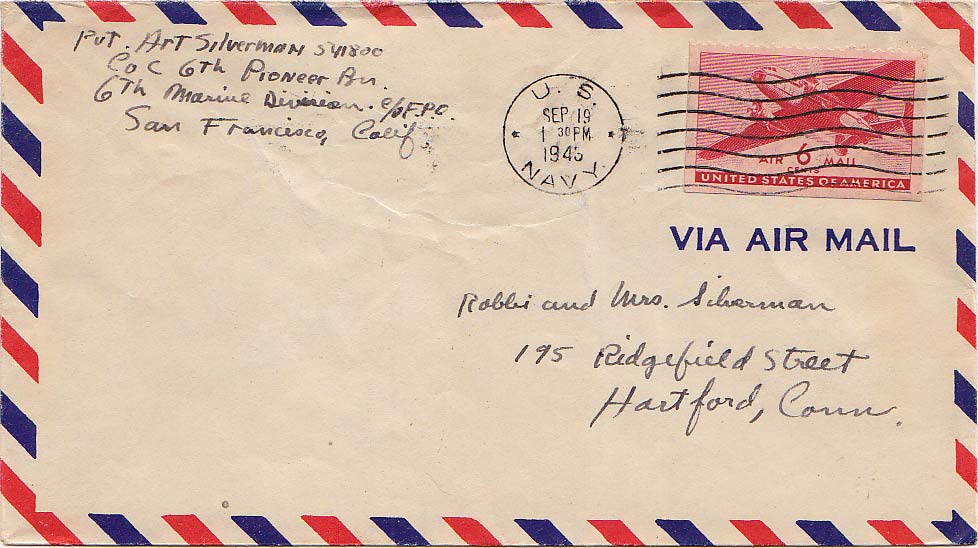 Pvt. Art Silverman 541800
Co C 6th Pioneer Bn.
6th Marine Division c/o F.P.O.
San Francisco, Calif
U. S.
SEP 19
1 30 PM
1945
NAVY
AIR 6 MAIL
CENTS
UNITED STATES OF AMERICA
VIA AIR MAIL
Rabbi and Mrs. Silverman
195 Ridgefield Street
Hartford, Conn.